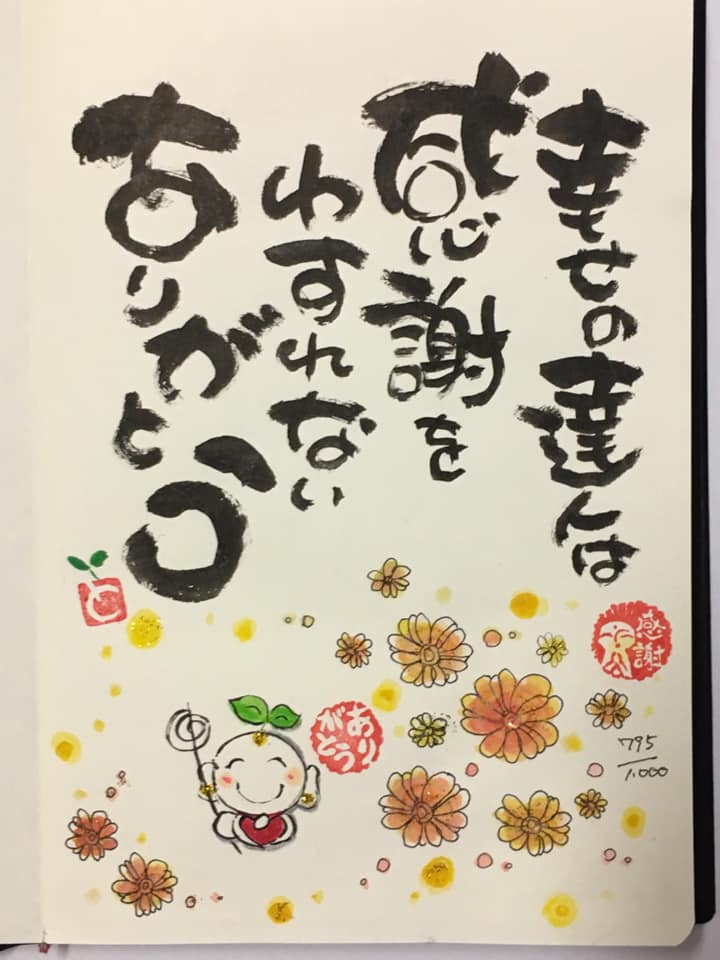 幸せの達人は
感謝を
わすれない
ありがとう
感謝
ありがとう
795/1,000